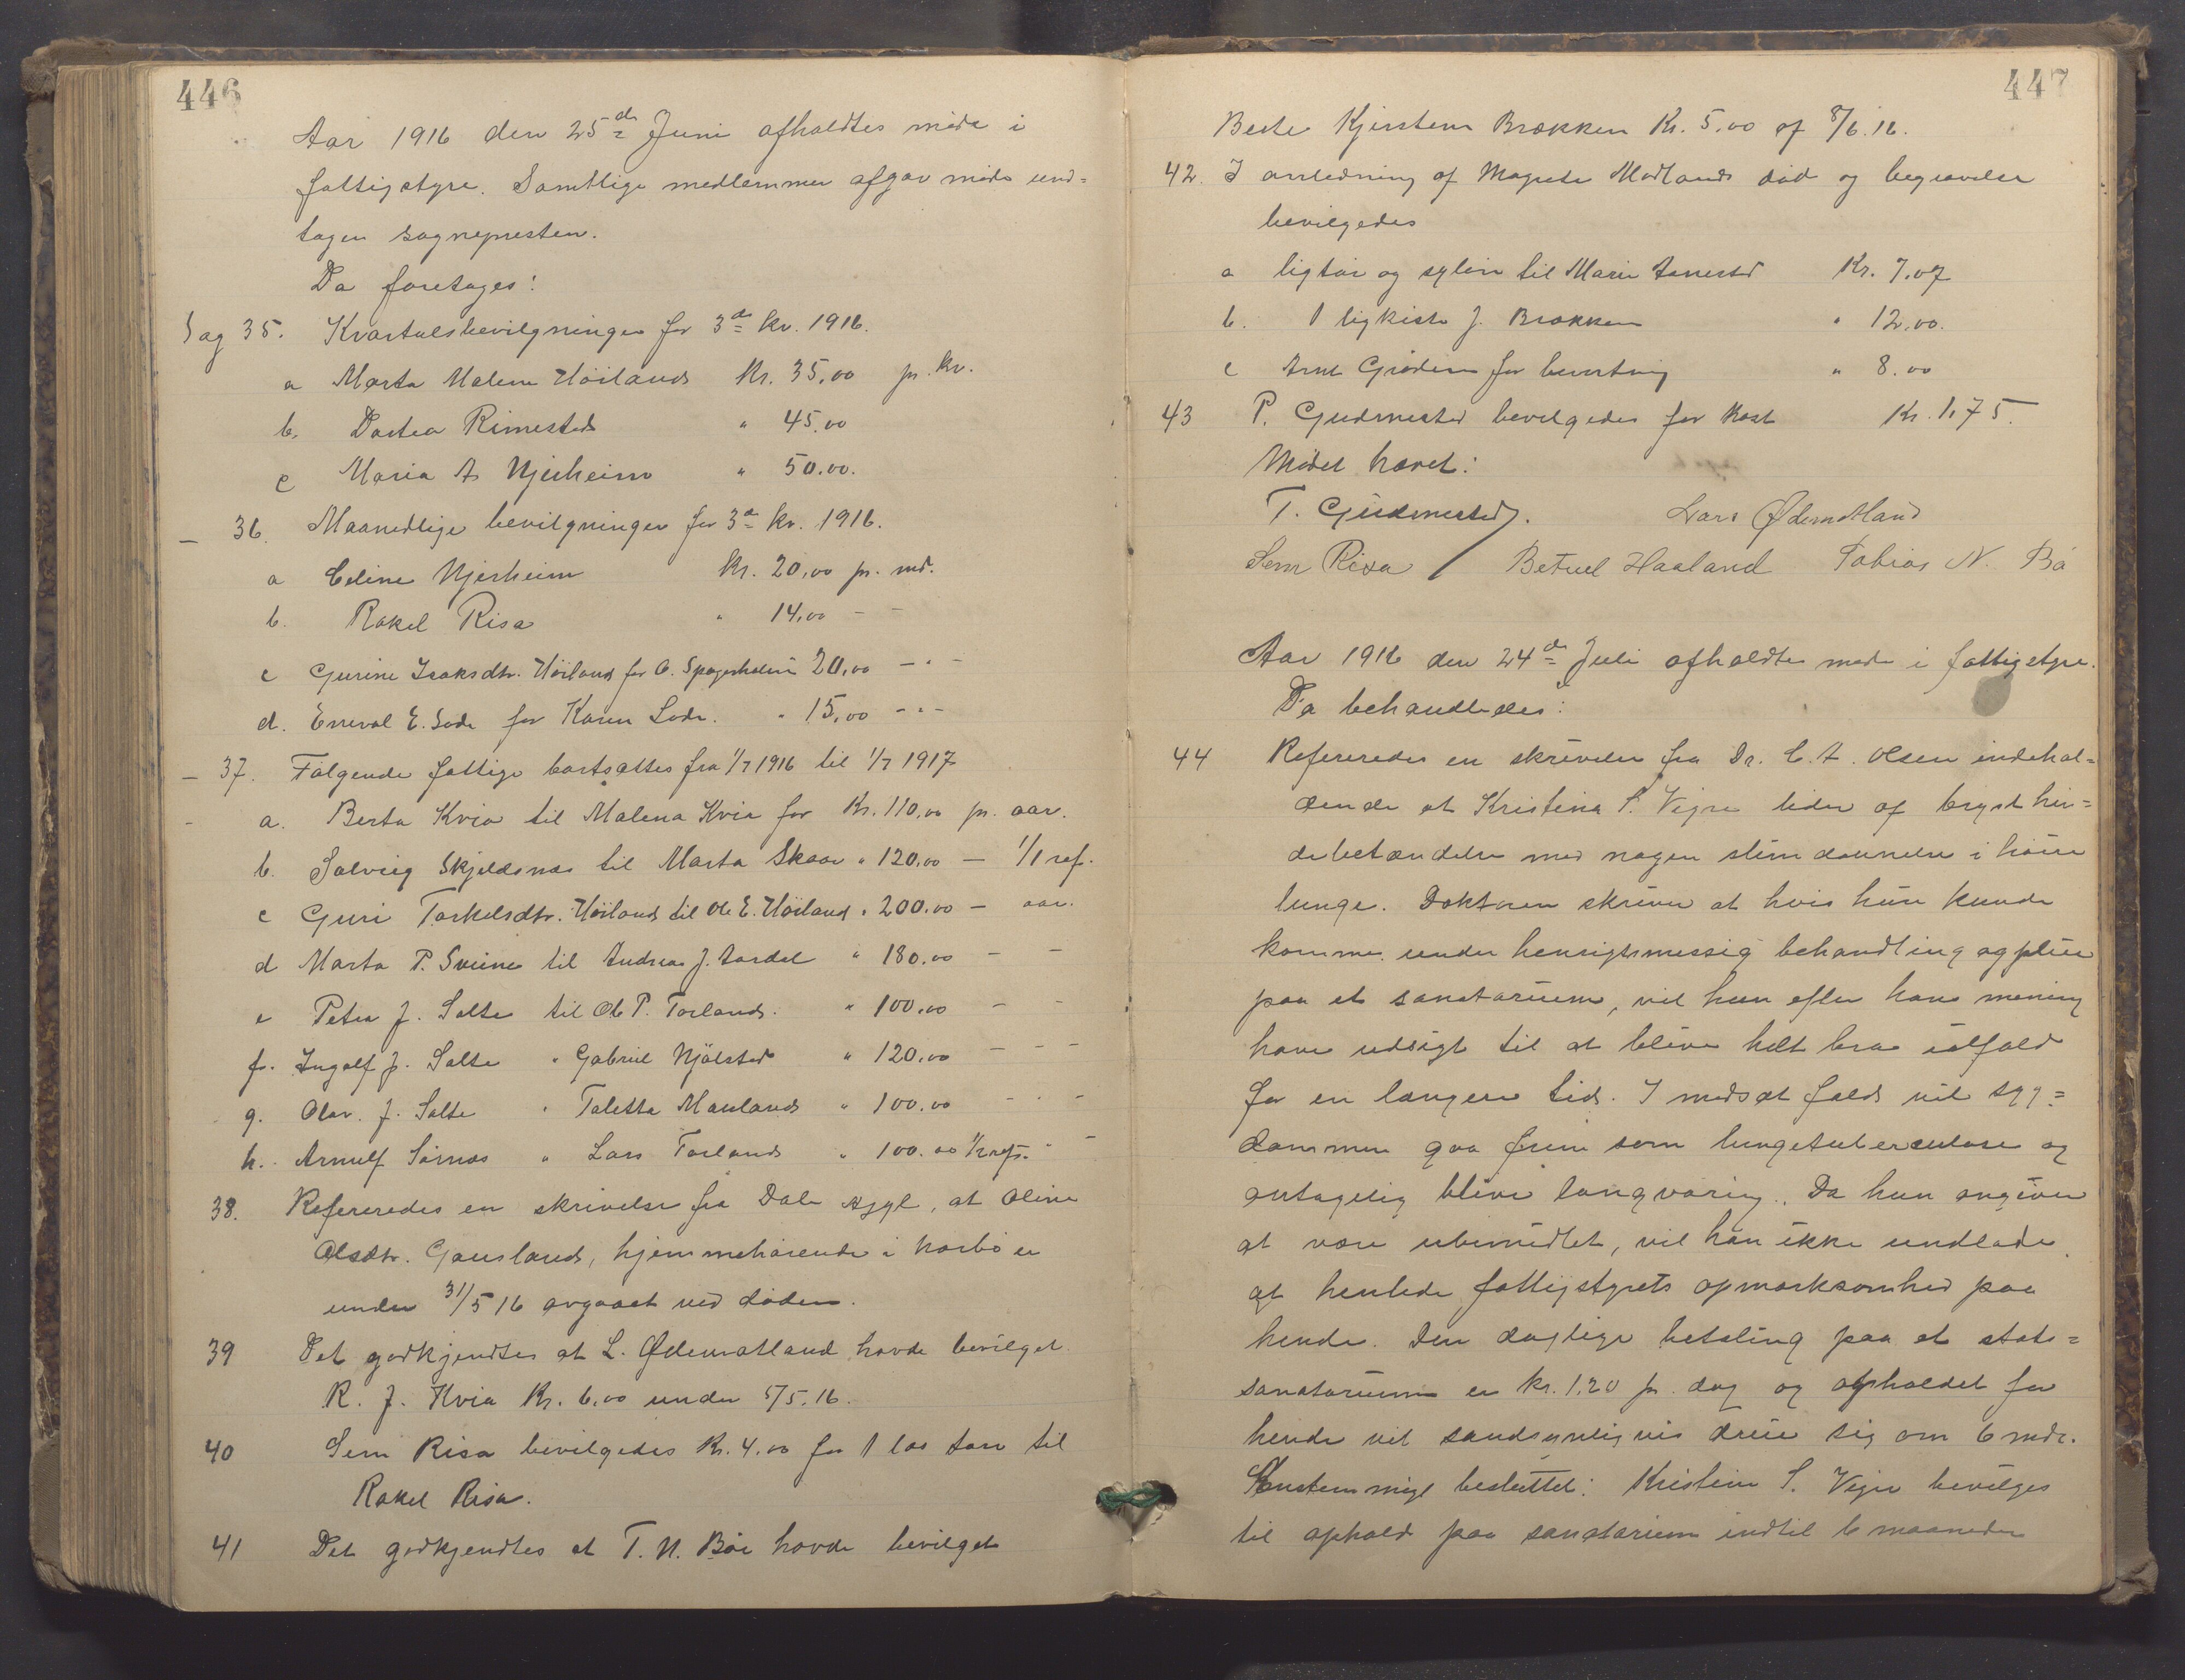 446
Aar 1916 den 25de Juni afholdtes møde i
fattigstyre. Samtlige medlemmer afgav møde und=
tagen sognepresten.
Da foretages:
Sag 35. Kvartalsbevilgninger for 3de kv. 1916.
a Marta Malene Höiland Kr. 35,00 pr. kv.
b. Dortea Rimestad " 45,00
c Maria A Njerheim " 50.00.
– 36. Maanedlige bevilgninger for 3de kv. 1916.
a Celine Njerheim Kr. 20,00 pr. md.
b. Rakel Risa " 14,00 – –
c Gurine Isaksdtr. Höiland for O. Spagerholen 20,00 – " –
d. Enevald E. Lode for Karen Lode. " 15,00 – " –
– 37. Følgende fattige bortsættes fra 1/7 1916 til 1/7 1917
a. Berta Kvia til Malena Kvia for Kr. 110,00 pr. aar.
b. Solveig Skjeldsnæs til Marta Skaar " 120,00 – 1/1 ref.
c Guri Torkelsdtr. Höiland til Ole E. Höiland " 200.00 – aar.
d Marta P. Sviine til Andreas J. Aardal " 180.00 – –
e Petra J. Salte til Ole P. Torland. " 100,00 – –
f. Ingolf J. Salte " Gabriel Njølstad " 120,00 – – –
g. Olav. J. Salte " Taletta Mauland " 100,00 – " –
h. Arnulf Sørnæs " Lars Torland " 100.00 1/2 refs. " –
38. Refereredes en skrivelse fra Dale asyl, at Oline
Olsdtr. Gausland, hjemmehörende i Nærbö er
under 31/5 16 avgaaet ved døden.
39 Det godkjendtes at L. Ødemotland havde bevilget
R. J. Kvia Kr. 6,00 under 5/5. 16.
40 Sem Risa bevilgedes Kr. 4.00 for 1 las torv til
Rakel Risa.
41 Det godkjendtes at T. N. Böe havde bevilget
447
Berte Kjersten Brækken Kr. 5,00 of 8/6. 16.
42. I anledning af Magrete Modlands död og begravelse
bevilgedes
a ligtøi og syløn til Marie Kr. 7,07
b. 1 ligkiste J. Brækken " 12,00.
c Arne Grødem for bevertning " 8.00
43 P. Gudmestad bevilgedes for kost Kr. 1,75.
Mödet hævet:
T. Gudmestad. Lars Ødemotland
Sem Risa / Betuel Haaland Tobias N. Bö
Aar 1916 den 24de Juli afholdtes møde i fattigstyre.
Da behandledes:
44 Refereredes en skrivelse fra Dr. C. A. Olsen indehol=
dende at Kristina S. Vigre lider af brysthin=
debetændelse med nogen slimdannelse i høire
lunge. Doktoren skriver at hvis hun kunde
komme under hensigtsmessig behandling og pleie
paa et sanatorium, vil hun efter hans mening
have udsigt til at blive helt bra ialfald
for en længere tid. I modsat fald vil syg=
dommen gaa frem som lungetuberculose og
antagelig blive langvarig. Da hun angiver
at være ubemidlet, vil han ikke undlade
at henlede fattigstyrets opmærksomhed paa
hende. Den daglige betaling paa et stats=
sanatorium er kr. 1,20 pr. dag og opholdet for
hende vil sandsynligvis dreie sig om 6 mdr.
Enstemmigt besluttet: Kristine S. Vigre bevilges
til ophold paa sanatorium indtil 6 maaneder